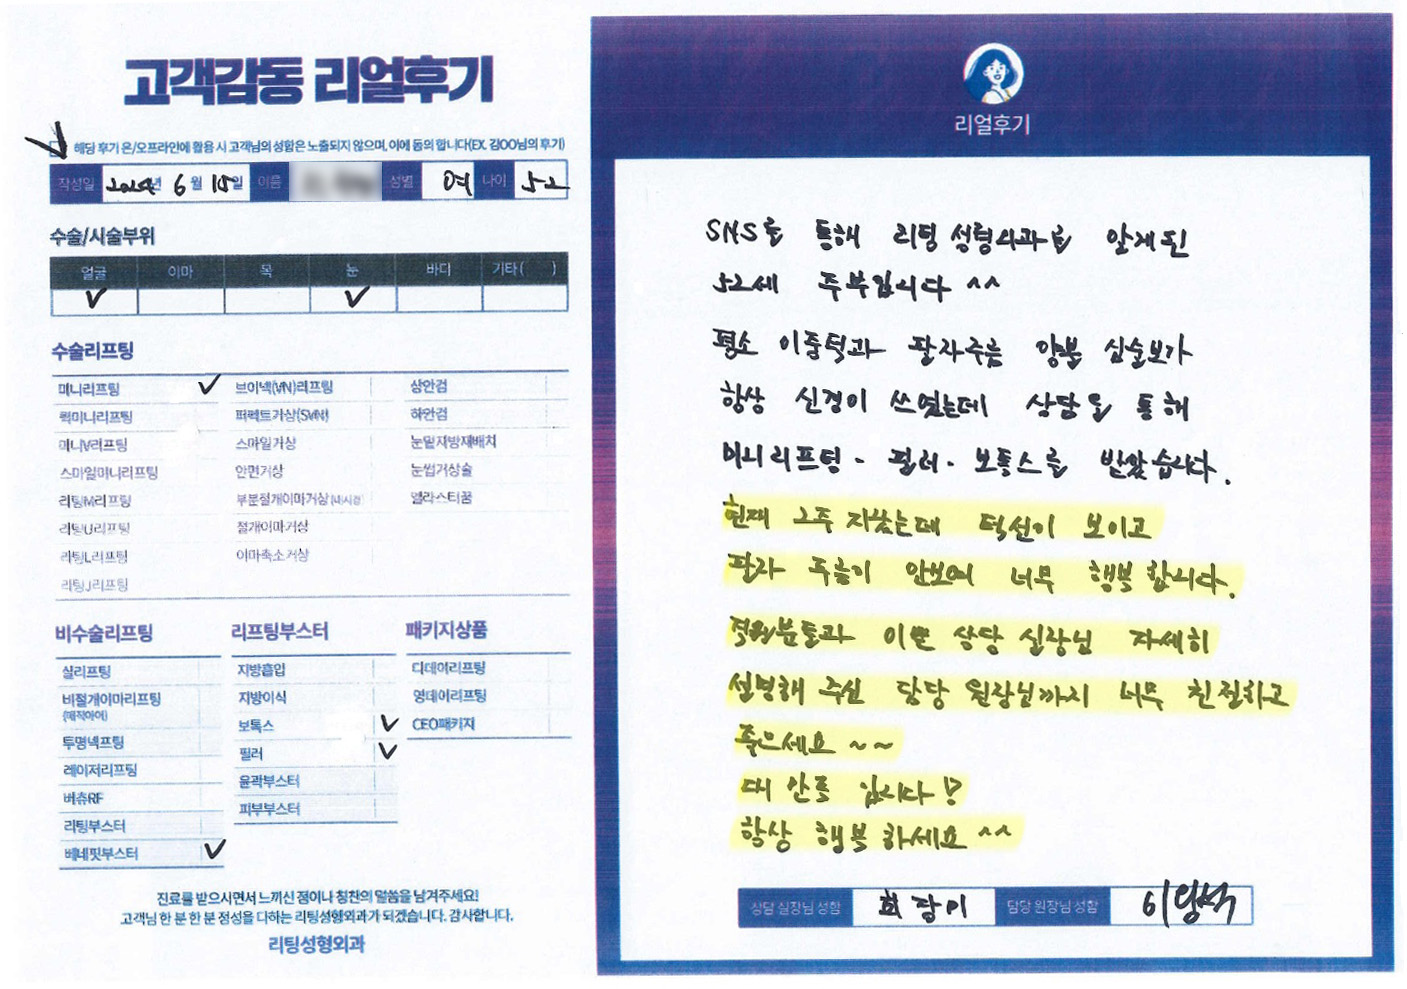 고객감동 리얼후기
해당 후기 온/오프라인에 활용 시 고객님의 성함은 노출되지 않으며, 이에 동의 합니다(EX. 김OO님의 후기)
작성일 2024년 6월 15일 이름 성별 여 나이 52
수술/시술부위
얼굴 이마 목 눈 바디 기타( )
수술리프팅
미니리프팅 브이넥(VN)리프팅 상안검
퀵미니리프팅 퍼펙트거상(SVN) 하안검
미니V리프팅 스마일거상 눈밑지방재배치
스마일미니리프팅 안면거상 눈썹거상술
리팅M리프팅 부분절개이마거상(내시경) 엘라스티꿈
리팅U리프팅 절개이마거상
리팅L리프팅 이마축소거상
리팅J리프팅
비수술리프팅 리프팅부스터 패키지상품
실리프팅 지방흡입 디데이리프팅
비절개이마리프팅 지방이식 영데이리프팅
(매직아이) 보톡스 CEO패키지
투명넥프팅 필러
레이저리프팅 윤곽부스터
버츄RF 피부부스터
리팅부스터
베네핏부스터
진료를 받으시면서 느끼신 점이나 칭찬의 말씀을 남겨주세요!
고객님 한 분 한 분 정성을 다하는 리팅성형외과가 되겠습니다. 감사합니다.
리팅성형외과
리얼후기
SNS을 통해 리팅성형외과를 알게된
52세 주부입니다 ^^
평소 이중턱과 팔자주름 양볼 심술보가
항상 신경이 쓰였는데 상담을 통해
미니리프팅 - 필러 - 보톡스를 받았습니다.
현재 2주 지났는데 턱선이 보이고
팔자 주름이 안보여 너무 행복합니다.
직원분들과 이쁜 상담 실장님 자세히
설명해 주신 담당 원장님까지 너무 친절하고
좋으세요 ~~
대 만족 입니다!
항상 행복하세요 ^^
상담 실장님 성함 담당 원장님 성함